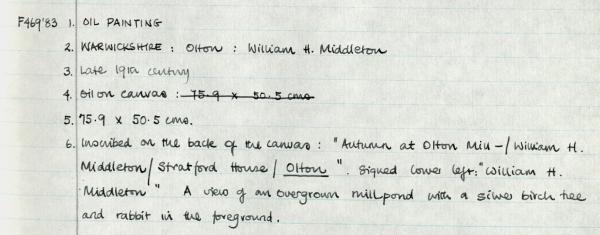 F469'83 1. OIL PAINTING
2. WARWICKSHIRE : Olton : William H. Middleton
3. Late 19th century
4. Oil on canvas : 75.9 x 50.5 cms
5. 75.9 x 50.5 cms.
6. Inscribed on the back of the canvas : "Autumn at Olton Mill -/ William H.
Middleton / Stratford House / Olton ". Signed lower left: "William H.
Middleton " A view of an overgrown millpond with a silver birch tree
and rabbit in the foreground.